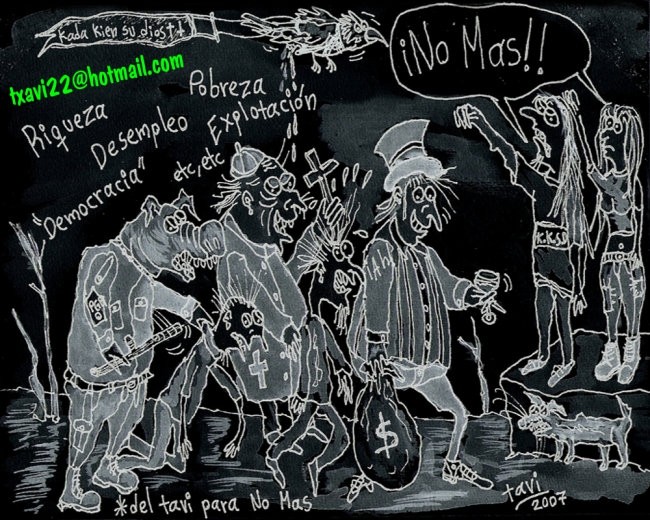 Kada kien su dios++
¡No Mas!!
txavi22@hotmail.com
Riqueza
Pobreza
Desempleo
Explotación
"Democracia"
etc, etc
K.K.S.D
JAh!
$
*del tavi para No Mas
tavi
2007